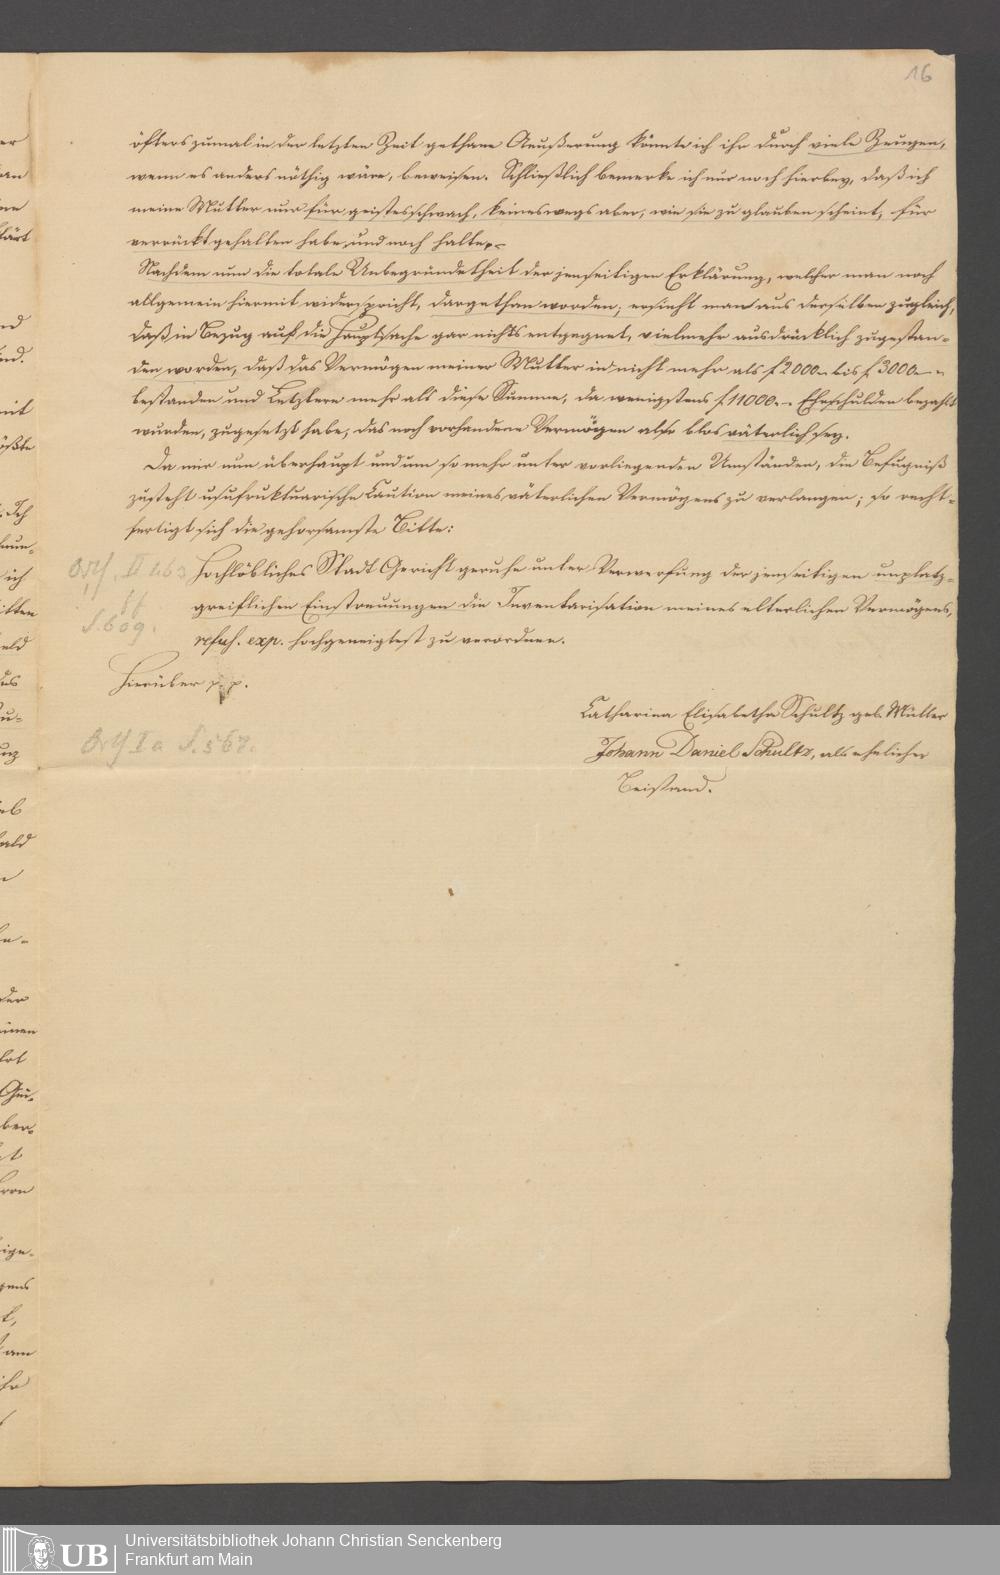 16
öfters zumal in der letzten Zeit gethane Aeußerung könnte ich ihr durch viele Zeugen,
wenn es anders nöthig wäre, beweisen. Schließlich bemerke ich nur noch hierbey, daß ich
meine Mutter nur für geistesschwach, keineswegs aber, wie sie zu glauben scheint, für
verrückt gehalten habe, und noch halte.
Nachdem nun die totale Unbegründetheit der jenseitigen Erklärung, welcher man noch
allgemein hiermit widerspricht, dargethan worden, ersieht man aus derselben zugleich,
daß in Bezug auf die Hauptsache gar nichts entgegnet, vielmehr ausdrücklich zugestan-
den worden, daß das Vermögen meiner Mutter in nicht mehr als f 2000 bis f 3000
bestanden und Letztere mehr als diese Summe, da wenigstens f 11000 Eheschulden bezahlt
wurden, zugesetzt habe, das noch vorhandene Vermögen also blos väterlich sey.
Da mir nun überhaupt und um so mehr unter vorliegenden Umständen, die Befugniß
zusteht usufruktuarische Caution meines väterlichen Vermögens zu verlangen; so recht-
fertigt sich die gehorsamste Bitte:
Hochlöbliches Stadt Gericht geruhe unter Verwerfung der jenseitigen unplatz-
greiflichen Einstreuungen die Inventarisation meines elterlichen Vermögens,
refus. exp. hochgeneigtest zu verordnen.
Hierüber p. p.
S. 609.
S. 567.
Catharina Elisabetha Schultz geb. Müller
Johann Daniel Schultz, als ehelicher
Beistand.
UB
Universitätsbibliothek Johann Christian Senckenberg
Frankfurt am Main